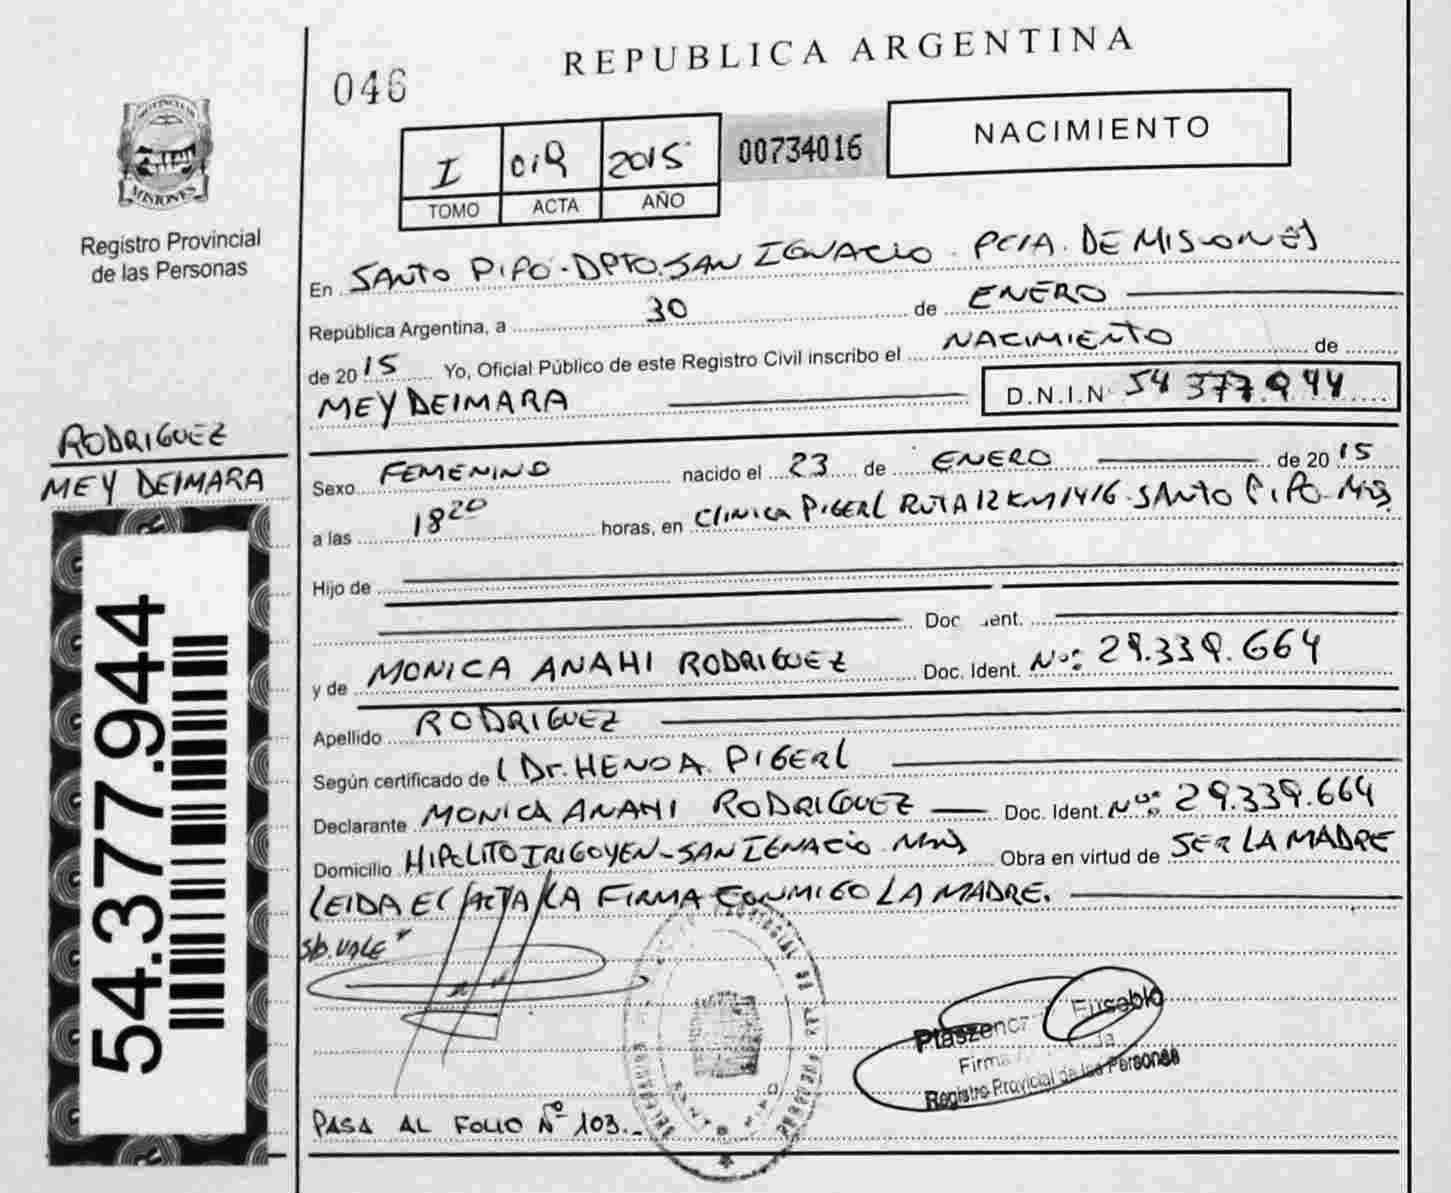 REPUBLICA ARGENTINA
046
I 019 2015
TOMO ACTA AÑO
00734016
NACIMIENTO
MISIONES
Registro Provincial
de las Personas
En SANTO PIPO-DPTO.SAN IGNACIO. PCIA. DE MISIONES
República Argentina, a 30 de ENERO
de 20 15 Yo, Oficial Público de este Registro Civil inscribo el NACIMIENTO de
MEY DEIMARA D.N.I.N 54 377.944
RODRIGUEZ
MEY DEIMARA
54.377.944
Sexo FEMENINO nacido el 23 de ENERO de 20 15
a las 18 20 horas, en CLINICA PIGERL RUTA 12 KM 1416-SANTO PIPO-Mis
Hijo de
Doc ent.
y de MONICA ANAHI RODRIGUEZ Doc. Ident. Nº: 29.339.664
Apellido RODRIGUEZ
Según certificado de Dr. HENO A. PIGERL
Declarante MONICA ANAHI RODRIGUEZ Doc. Ident. Nº: 29.339.664
Domicilio HIPOLITO IRIGOYEN-SAN IGNACIO. Mis Obra en virtud de SER LA MADRE
LEIDA EL ACTA LA FIRMA CONMIGO LA MADRE.
S/b. VALE
Eusebio
Firma
Registro Provicial de las Personas
PASA AL FOLIO Nº 103.-